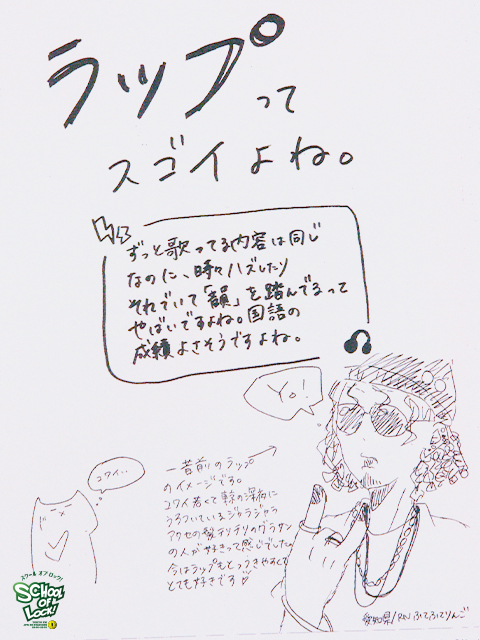 ラップって
スゴイよね。
ずっと歌ってる内容は同じ
なのに、時々ハズしたり
それでいて「韻」を踏んでるって
やばいですよね。国語の
成績よさそうですよね。
Yo!
コワイ…
一昔前のラップ
のイメージです。
コワイ若くて軽の深夜に
うろついているジャラジャラ
アクセの髪チリチリのグラサン
の人がやおきって感じでした。
今はラップもとっつきやすくて
とても好きです♡
スクール オブ ロック!
SCHOOL
OF
LOCK!
愛知県/RN ふてふてりんご